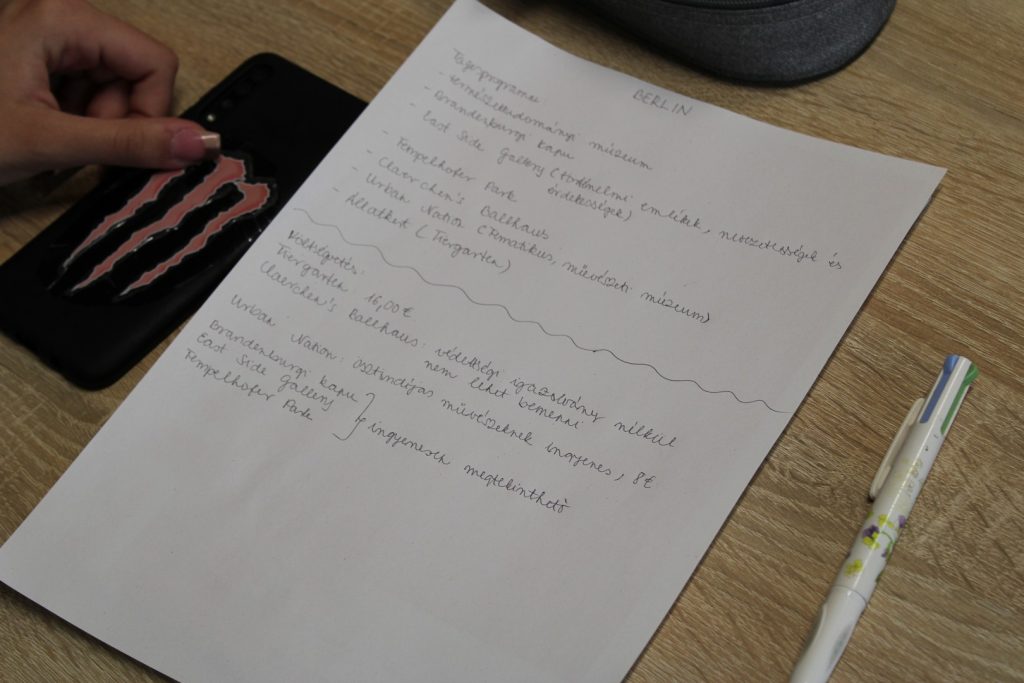 BERLIN
Tagesprogramm:
- természettudományi múzeum
- Brandenburgi kapu
- East Side Gallery (történelmi emlékek, nevezetességek és érdekességek)
- Tempelhofer Park
- Claerchen's Ballhaus
- Urban Nation (tematikus, művészeti múzeum)
- Állatkert (Tiergarten)
Költségvetés:
Tiergarten 16,00 €
Claerchen's Ballhaus: védettségi igazolvány nélkül
nem lehet bemenni
Urban Nation: ösztöndíjas művészeknek ingyenes, 8€
Brandenburgi kapu
East Side Gallery
Tempelhofer Park
} ingyenesen megtekinthető